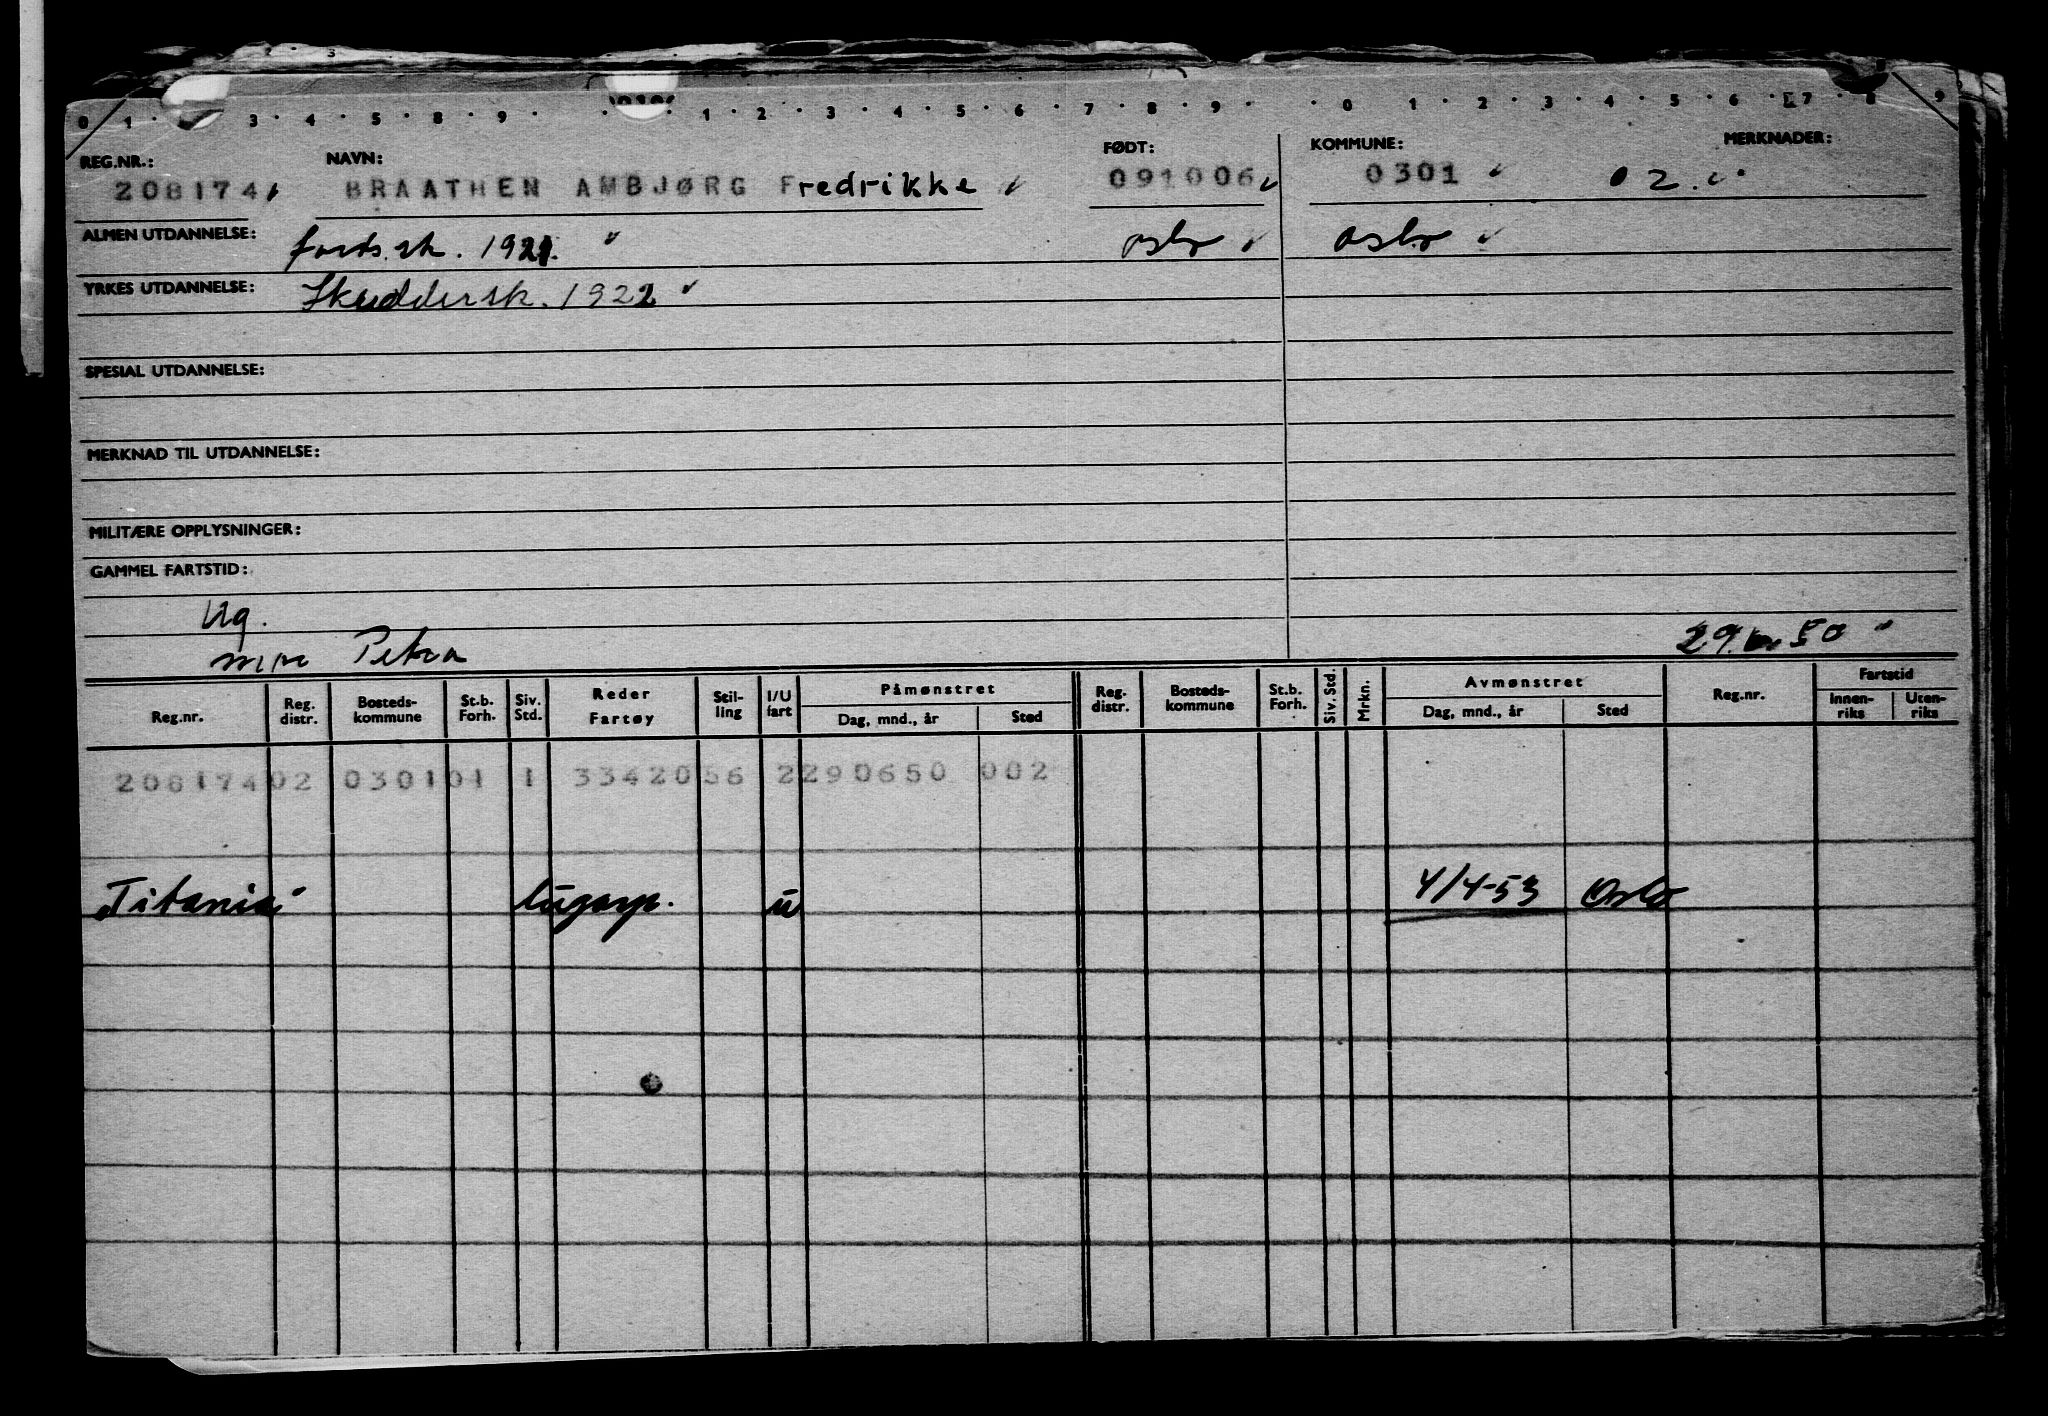 0 1 · 3 · 4 · 5 · 8 · 9 · · 1 · 2 · 3 · 4 · 5 · 6 · 7 · 8 · 9 · · 0 · 1 · 2 · 3 · 4 · 5 · 6 · 7 · 8 9
REG.NR.: NAVN: FØDT: KOMMUNE: MERKNADER:
208174 BRAATHEN AMBJØRG Fredrikke 091006 0301 02.
ALMEN UTDANNELSE: forts.sk. 1921. Oslo Oslo
YRKES UTDANNELSE: Skreddersk. 1922
SPESIAL UTDANNELSE:
MERKNAD TIL UTDANNELSE:
MILITÆRE OPPLYSNINGER:
GAMMEL FARTSTID:
Ug.
mor Petra 29.6.50
Reg.nr. Reg. distr. Bosteds- kommune St.b. Forh. Siv. Std. Reder Fartøy Stil- ling I/U fart Påmønstret Dag, mnd., år Sted Reg. distr. Bosteds- kommune St.b. Forh. Siv. Std. Mrkn. Avmønstret Dag, mnd., år Sted Reg.nr. Fartstid Innen- riks Uten- riks
208174 02 0301 01 1 33420 56 2 290650 002
Titania lugarp. u 4/4-53 Oslo